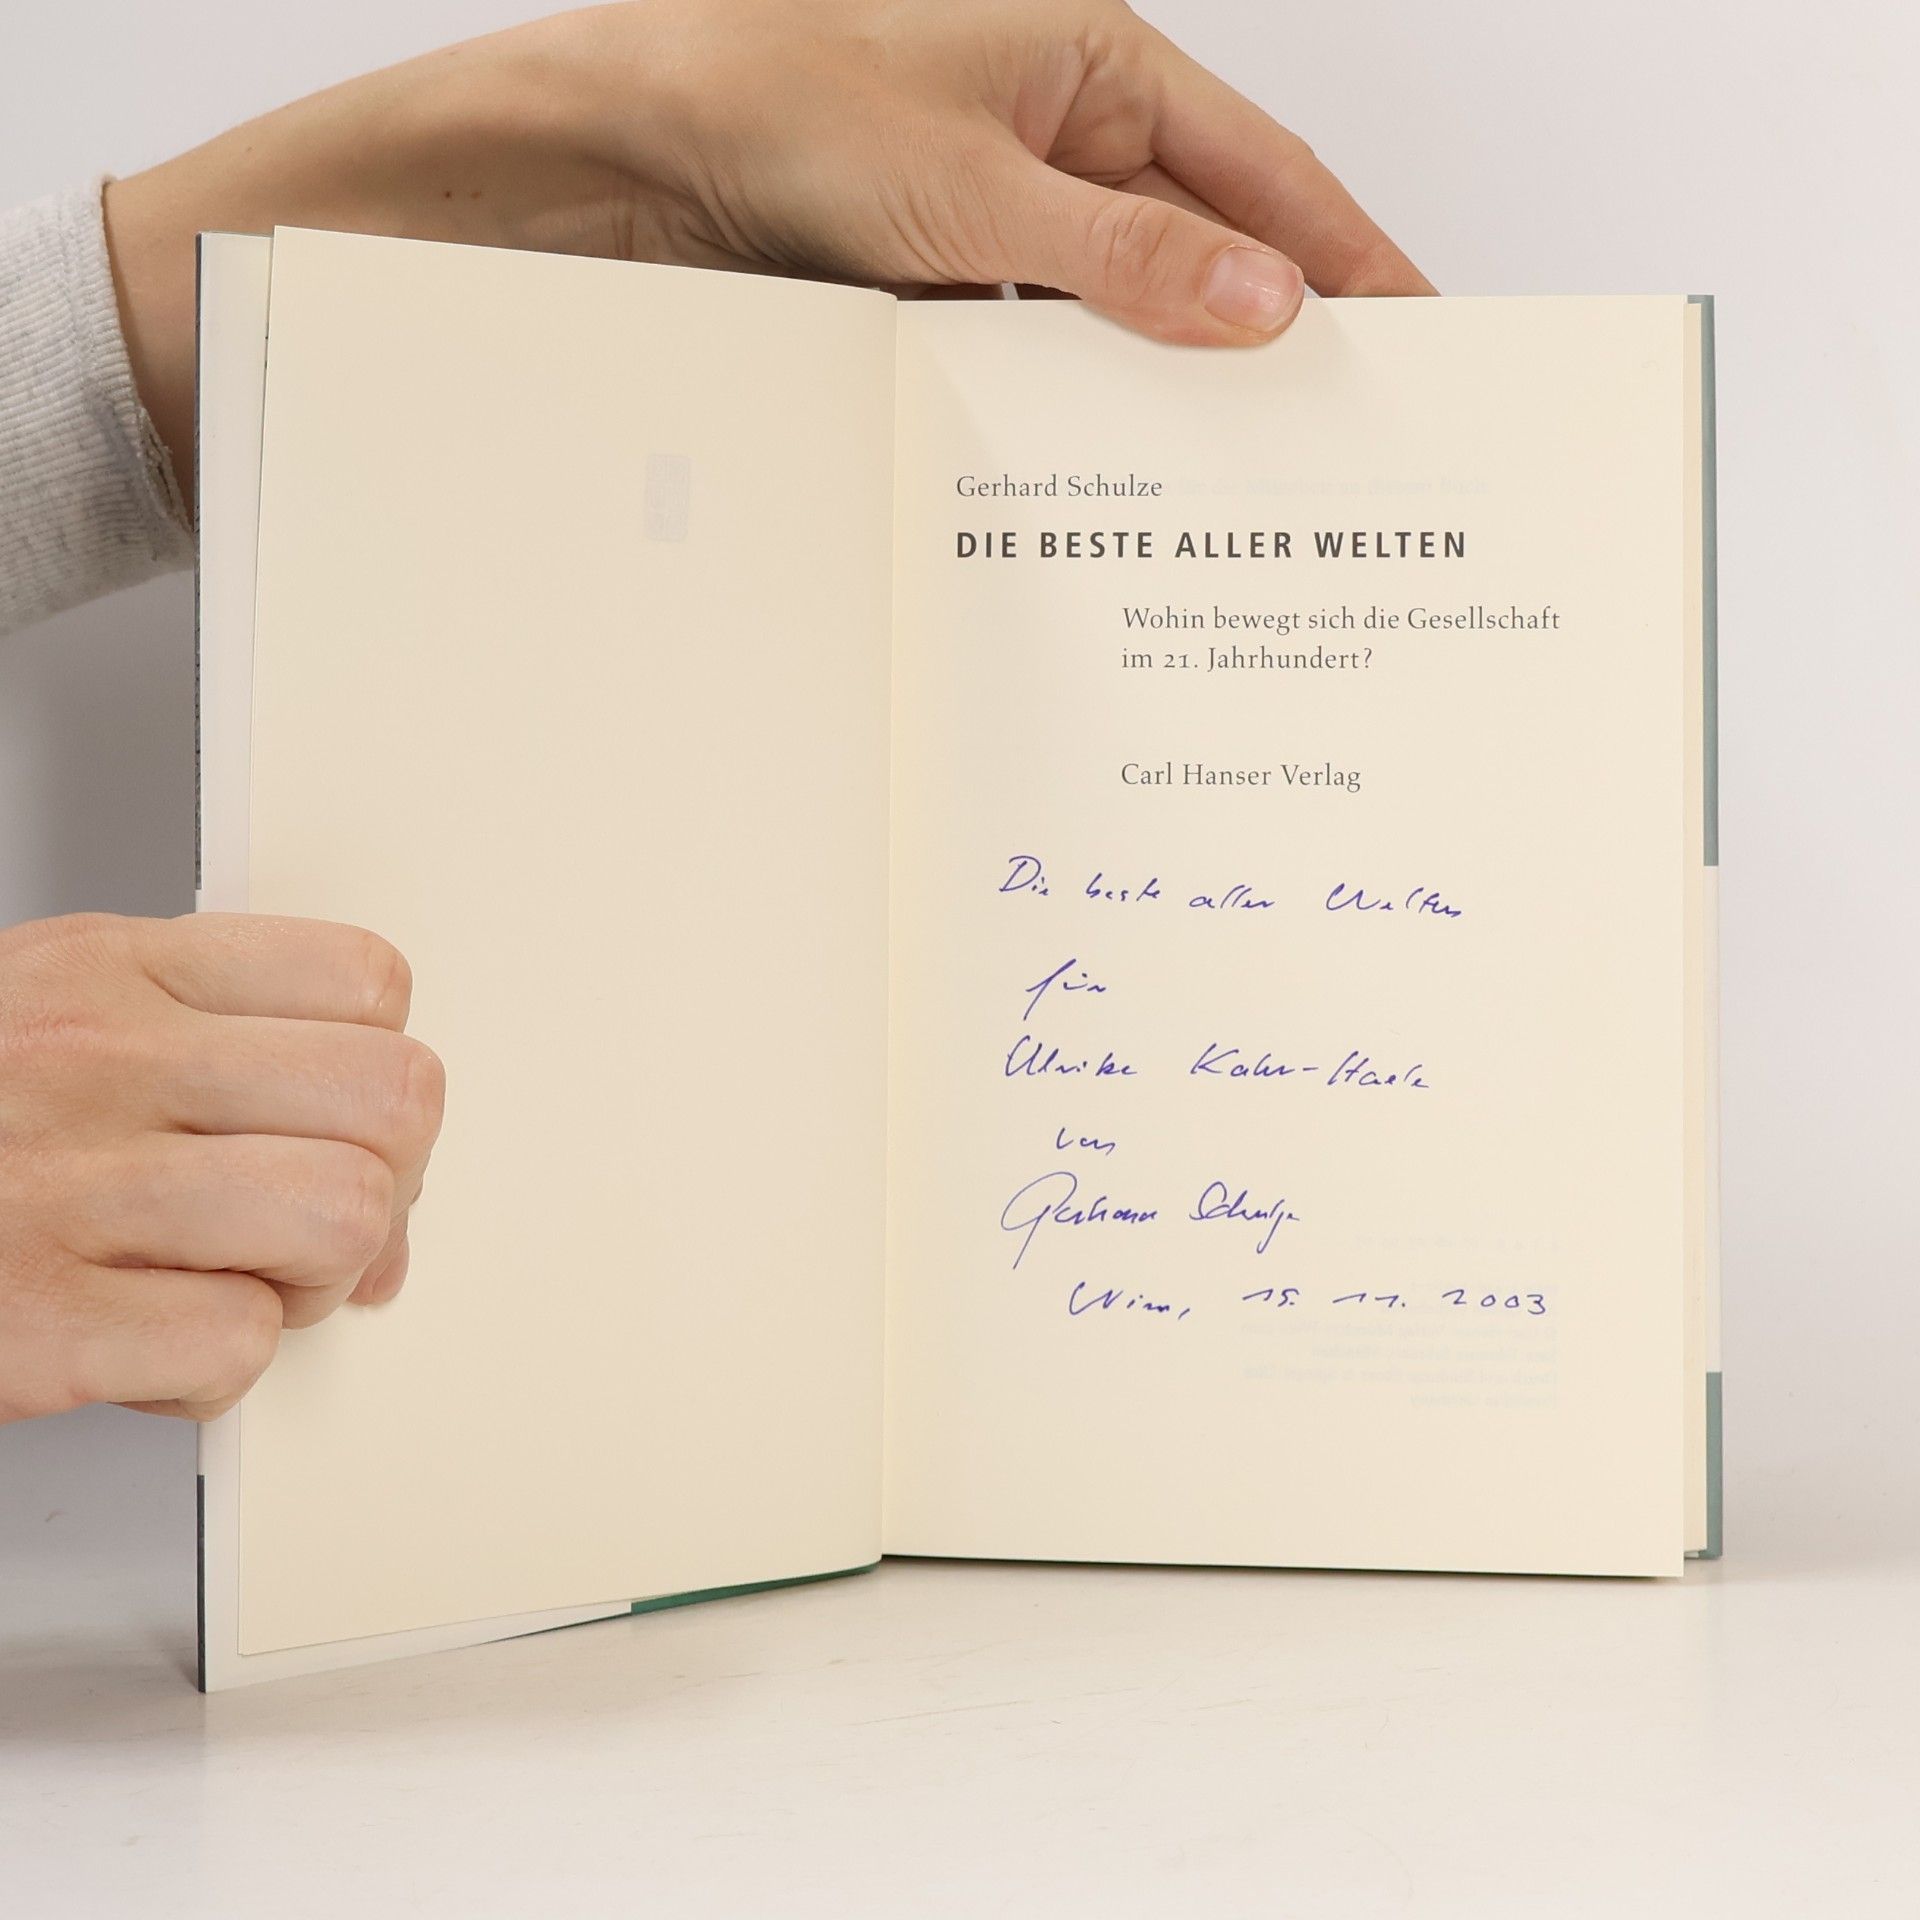 Gerhard Schulze
DIE BESTE ALLER WELTEN
Wohin bewegt sich die Gesellschaft
im 21. Jahrhundert?
Carl Hanser Verlag
Die beste aller Welten
für
Ulrike
von
Gerhard Schulze
Wien, 15. 11. 2003